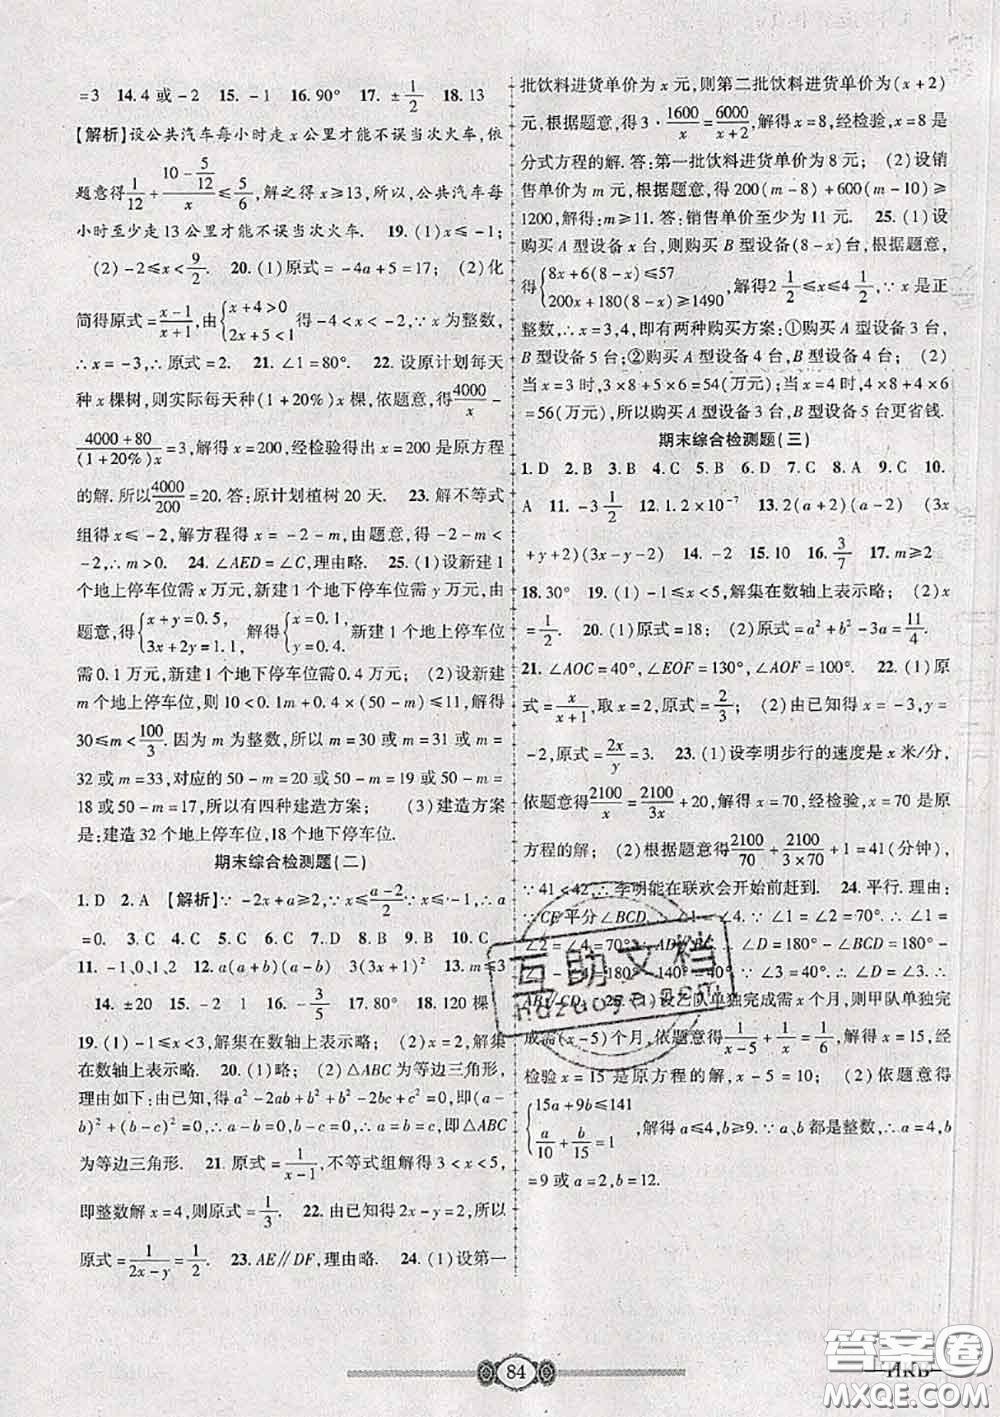 =3 14.4 或 -2 15. -1 16.90° 17. ±1/2 18.13
【解析】设公共汽车每小时走 x 公里才能不误当次火车,依
题意得 1/12 + (10 - 5/12)/x ≤ 5/6,解之得 x≥13,所以,公共汽车每
小时至少走 13 公里才能不误当次火车. 19.(1)x≤-1;
(2)-2≤x<9/2. 20.(1)原式=-4a+5=17; (2)化
简得原式=(x-1)/(x+1),由{x+4>0 2x+5<1得-4<x<-2,∵x 为整数,
∴x=-3,∴原式=2. 21.∠1=80°. 22. 设原计划每天
种 x 棵树,则实际每天种(1+20%)x 棵,依题意,得4000/x -
(4000+80)/((1+20%)x)=3,解得 x=200,经检验得出 x=200 是原方程
的解.所以4000/200=20.答:原计划植树 20 天. 23. 解不等式
组得 x≤-2,解方程得 x=-2-m,由题意,得 -2-m<
-2,∴m>0. 24. ∠AED=∠C,理由略. 25.(1)设新建 1
个地上停车位需 x 万元,新建 1 个地下停车位需 y 万元,由
题意,得{x+y=0.5, 3x+2y=1.1, 解得{x=0.1, y=0.4. 新建 1 个地上停车位
需 0.1 万元,新建 1 个地下停车位需 0.4 万元; (2)设新建
m 个地上停车位,则 10<0.1m+0.4×(50-m)≤11,解得
30≤m<100/3. 因为 m 为整数,所以 m=30 或 m=31 或 m=
32 或 m=33,对应的 50-m=20 或 50-m=19 或 50-m=
18 或 50-m=17,所以有四种建造方案; (3)建造方案
是:建造 32 个地上停车位,18 个地下停车位.
期末综合检测题(二)
1. D 2. A 【解析】∵-2x+a≥2,∴x≤(a-2)/2∵x≤-1,∴a
=0. 3. C 4. C 5. C 6. C 7. D 8. B 9. B 10. C
11. -1、0、1、2 12. a(a+b)(a-b) 3(3x+1)² 13. m≤3
14. ±20 15. -2 1 16. -3/5 17. 80° 18. 120 棵
19.(1)-1≤x<3,解集在数轴上表示略; (2)x=2,解集
在数轴上表示略. 20.(1)略; (2)△ABC 为等边三角形,
理由如下:由已知,得 a²-2ab+b²+b²-2bc+c²=0,即(a-
b)²+(b-c)²=0,∴a-b=0,b-c=0,∴a=b=c,即△ABC
为等边三角形. 21. 原式=1/(x-1),不等式组解得 3<x<5,
即整数解 x=4,则原式=1/3. 22. 由已知得 2x-y=2,所以
原式=1/(2x-y)=1/2. 23. AE∥DF,理由略. 24. (1)设第一
批饮料进货单价为 x 元,则第二批饮料进货单价为(x+2)
元,根据题意,得 3·1600/x=6000/(x+2),解得 x=8,经检验,x=8 是
分式方程的解.答:第一批饮料进货单价为 8 元; (2)设销
售单价为 m 元,根据题意,得 200(m-8)+600(m-10)≥
1200,解得:m≥11.答:销售单价至少为 11 元. 25.(1)设
购买 A 型设备 x 台,则购买 B 型设备(8-x)台,根据题意,
得{8x+6(8-x)≤57 200x+180(8-x)≥1490, 解得2 1/2≤x≤4 1/2,∵x 是正
整数,∴x=3,4,即有两种购买方案:①购买 A 型设备 3 台,
B 型设备 5 台;②购买 A 型设备 4 台,B 型设备 4 台; (2)
当 x=3 时,3×8+5×6=54(万元);当 x=4 时,4×8+4×6
=56(万元),所以购买 A 型设备 3 台,B 型设备 5 台更省钱.
期末综合检测题(三)
1. D 2. B 3. B 4. C 5. B 6. D 7. C 8. A 9. C 10.
A 11. -3 1/2 12. 1.2×10⁻⁷ 13. 2(a+2)(a-2) (3x
+y+2)(3x-y-2) 14. -2 15. 10 16. 3/7 17. m≥2
18. 30° 19.(1)-1≤x<5,解集在数轴上表示略; (2)x
=1/2. 20.(1)原式=18; (2)原式=a²+b²-3a=11/4.
21. ∠AOC=40°,∠EOF=130°,∠AOF=100°. 22.(1)原
式=x/(x+1),取 x=2,原式=2/3; (2)由已知得 x=-3,y=
-2,原式=2x/y=3. 23.(1)设李明步行的速度是 x 米/分,
依题意得2100/x=2100/3x+20,解得 x=70,经检验,x=70 是原
方程的解; (2)根据题意得2100/70+2100/(3×70)+1=41(分钟),
∵41<42,∴李明能在联欢会开始前赶到. 24. 平行. 理由:
∵CE平分∠BCD,∴∠1=∠4,∵∠1=∠2=70°,∴∠1=
∠2=∠4=70°,∴AD∥BC,∴∠D=180°-∠BCD=180°-
∠1-∠4=180°-140°=40°,∵∠3=40°,∴∠D=∠3,∴
AB∥CD. 25.(1)设乙队单独完成需 x 个月,则甲队单独完
成需(x-5)个月,依题意得1/(x-5)+1/x=1/6,解得 x=15,经
检验 x=15 是原方程的解,x-5=10; (2)依题意得
{15a+9b≤141 a/10+b/15=1 ,解得 a≤4,b≥9.∵a、b 都是整数,∴a=4,b
=9 或 a=2,b=12.
互助文档
hdzuoye.com
84
HKB
答案圈
MXQE.COM